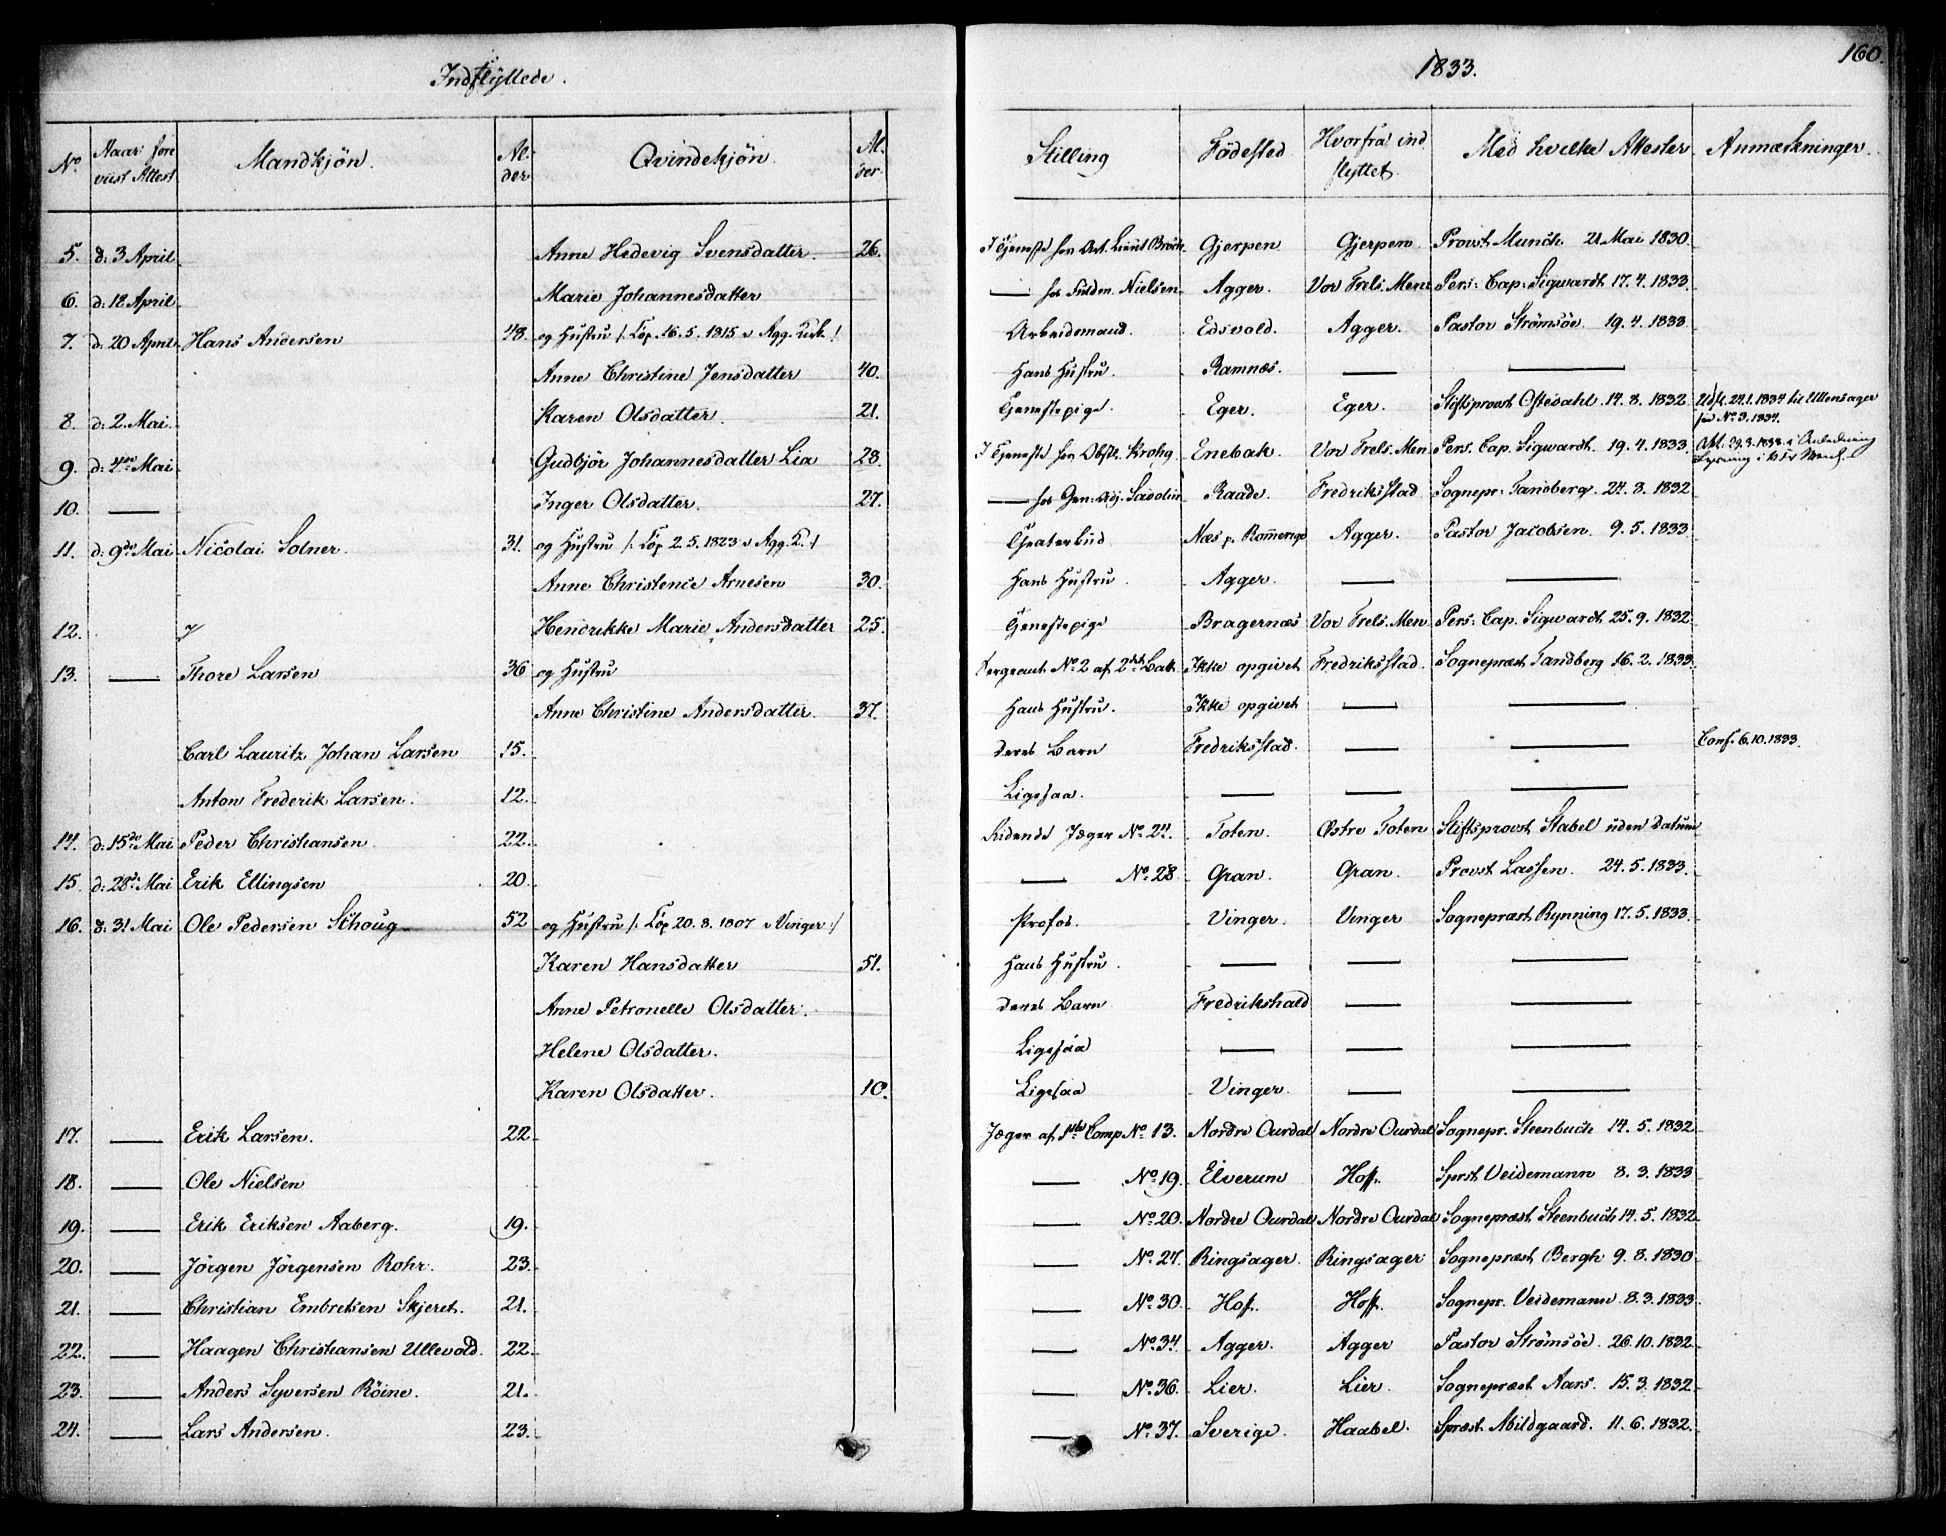 Indflyttede.
1833.
160.
No. Naar fore viist Attest Mandkjön. Al: der Qvindekjön. Al. der. Stilling Födested Hvorfra ind flyttet. Med hvilke Attester Anmærkninger.
5. d: 3 April Anne Hedevig Svensdatter. 26. I Tjeneste hos Gjerpen Gjerpen Provst Munch 21 Mai 1830
6. d: 18 April Marie Johannesdatter — hos Fuldm. Nielsen Agger. Vor Frels. Men: Pers: Cap: Sigwardt 17. 4. 1833.
7. d: 20 April Hans Andersen 48. og Hustru /: Cop. 16. 5. 1815 v Agg. Kirk. :/ Arbeidsmand. Edsvold. Agger. Pastor Strömsöe. 19. 4. 1833
Anne Christine Jensdatter 40. Hans Hustru. Ramnæs. — —
8. d: 2. Mai. Karen Olsdatter. 21. Tjenestepige. Eger. Eger. Stiftsprovst Oftedahl. 14. 8. 1832 Udfl. 24. 1. 1834 til Ullensager
see No 3. 1834.
9. d: 4de Mai Gudbjör Johannesdatter Lia 28. I Tjeneste hos Obstl. Krohg Enebak. Vor Frels. Men Pers. Cap. Sigwardt. 19. 4. 1833. i Anledning
10. — Inger Olsdatter. 27. — hos Gen: Adj. Raade. Fredriksstad Sognepr: Tandberg. 24. 8. 1832
11. d: 9de Mai Nicolai Solner. 31. og Hustru /: Cop 2. 5. 1823 v Agg. K. :/ Theaterbud Næs p. Romerige Agger. Pastor Jacobsen. 9. 5. 1833.
Anne Christence Arnesen 30. Hans Hustru. Agger. — —
12. Hendrikke Marie Andersdatter 25. Tjenestepige Bragernæs Vor Frels. Men Pers: Cap. Sigwardt 25. 9. 1832
13. — Thore Larsen 36 og Hustru Sergeant No. 2 af 2det Bak. Ikke opgivet Fredriksstad. Sognepræst Tandberg 16. 2. 1833.
Anne Christine Andersdatter. 37. Hans Hustru. Ikke opgivet — —
Carl Lauritz Johan Larsen 15. Deres Barn Fredriksstad. — — Conf. 6. 10. 1833.
Anton Frederik Larsen. 12. Ligesaa. — — —
14. d: 15de Mai Peder Christiansen 22. Ridende Jæger No. 24. Toten. Østre Toten Stiftsprovst Stabel uden Datum
15. d: 28de Mai Erik Ellingsen 20. — No. 28. Gran. Gran. Provst Lassen. 24. 5. 1833.
16. d: 31 Mai Ole Pedersen Schoug 52 og Hustru /: Cop 20. 8. 1807 v Vinger :/ Profos. Vinger. Vinger Sognepræst Rynning 17. 5. 1833.
Karen Hansdatter 51. Hans Hustru. — — —
Anne Petronelle Olsdatter. Deres Barn Fredrikshald — —
Helene Olsdatter. Ligesaa — — —
Karen Olsdatter. 10. Ligesaa Vinger. — —
17. — Erik Larsen. 22. Jæger af 1ste Comp No. 13. Nordre Ourdal Nordre Ourdal Sognepr. Steenbuch 14. 5. 1832
18. — Ole Nielsen — No. 19. Elverum Hoff. Sprst. Veidemann 8. 3. 1833
19. — Erik Eriksen Aaberg. 19. — No. 20. Nordre Ourdal Nordre Ourdal Sognepræst Steenbuch 14. 5. 1832
20. — Jörgen Jörgensen Rohr. 23. — No. 27. Ringsager. Ringsager Sognepræst Bergh 9. 8. 1830
21. — Christian Embretsen Skjeret. 21. — No. 30. Hof. Hoff. Sognepr. Veidemann. 8. 3. 1833.
22. — Haagen Christiansen Ullevold. 22. — No. 34. Agger. Agger Pastor Strömsöe. 26. 10. 1832.
23. — Anders Syversen Röine. 21. — No. 36. Lier. Lier. Sognepræst Aars. 15. 3. 1832.
24. — Lars Andersen. 23. — No. 37. Sverige. Haabel. Spræst. Abildgaard. 11. 6. 1832.